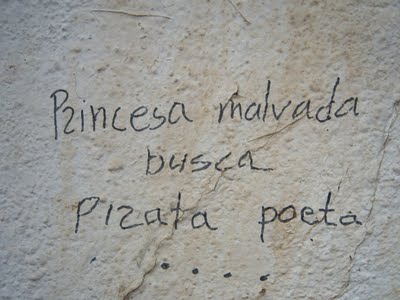 Princesa malvada
busca
Pirata poeta
. . . . .